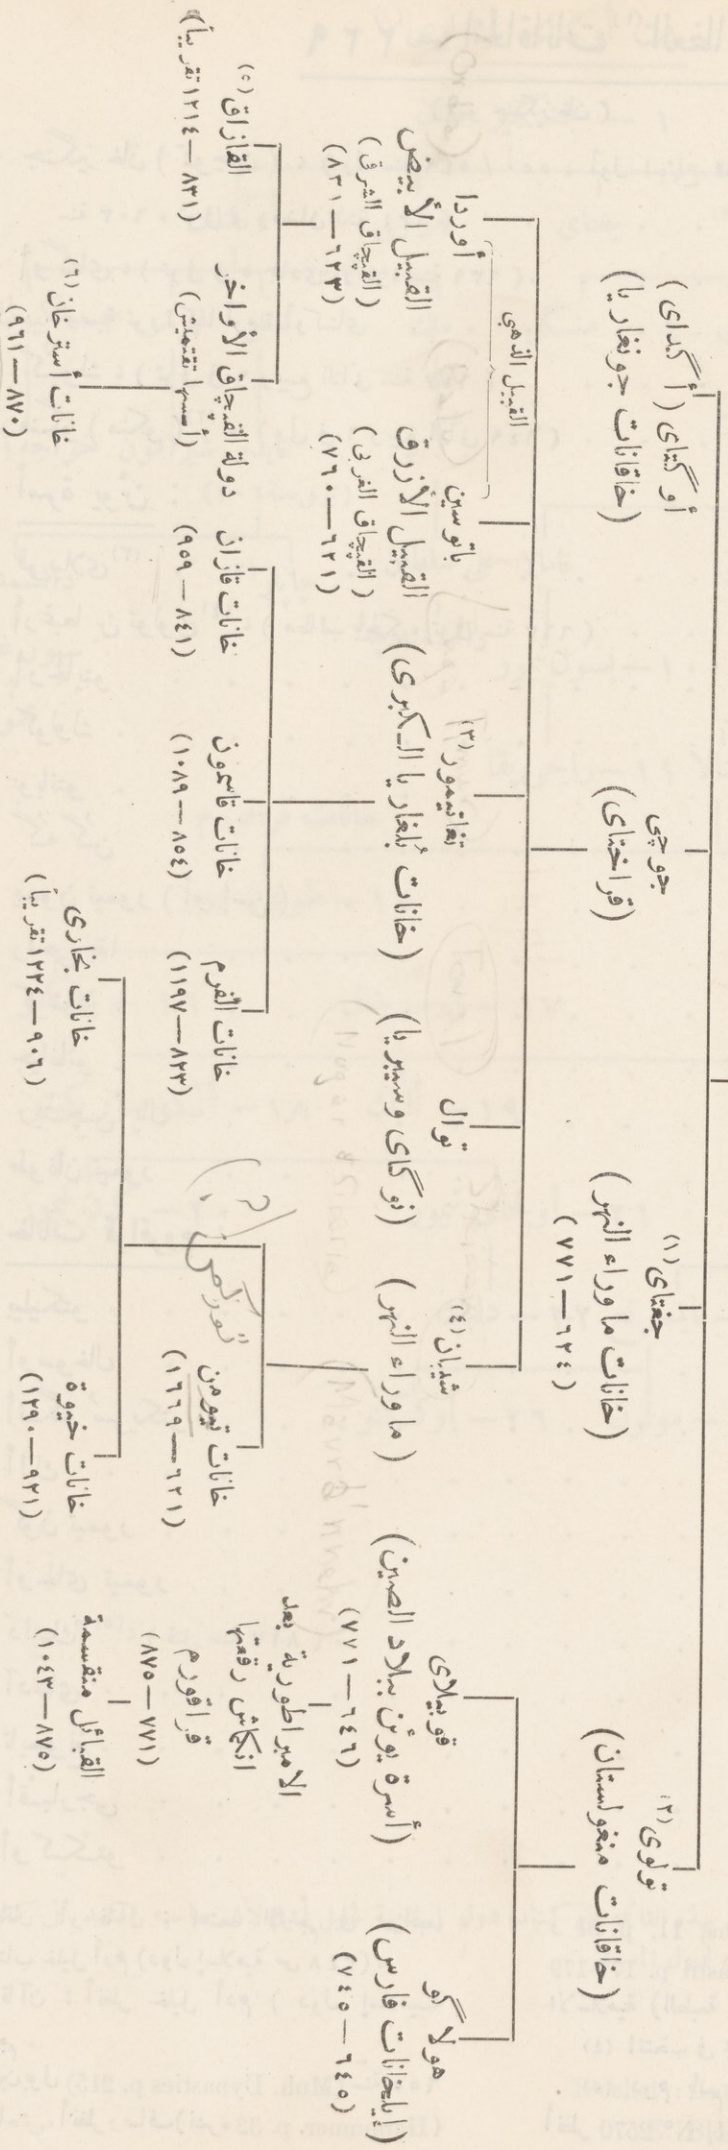 أوگتای (أگدای)
(خاقانات جونغاریا)
جوچی
(قراختای)
جغتای (١)
(خانات ماوراء النهر)
(٦٢٤ — ٧٧١)
تولوی (٢)
(خاقانات منغولستان)
أوردا
القبيل الأبيض
(القپچاق الشرقی)
(٦٢٣ — ٨٣١)
القبيل الذهبی
باتوسین
القبيل الأزرق
(القپچاق الغربی)
(٦٢١ — ٧٦٠)
تغاتیمور (٣)
(خانات بُلغاریا الكبری)
توال
(نوگای وسیبریا)
شیبان (٤)
(ماوراء النهر)
قوبیلای
(أسرة یوئن ببلاد الصین)
(٦٤٦ — ٧٧١)
هولاگو
(إیلخانات فارس)
(٦٤٥ — ٧٤٥)
القازاق (٥)
(٨٣١ — ١٢١٤ تقریباً)
دولة القپچاق الأواخر
(أسسها تقتمیش)
خانات أسترخان (٦)
(٨٧٠ — ٩٦١)
خانات قازان
(٨٤١ — ٩٥٩)
خانات قاسموف
(٨٥٤ — ١٠٨٩)
خانات القرم
(٨٢٣ — ١١٩٧)
خانات تیومن
(٦٢١ — ١٦٦٩)
(؟)
خانات بخاری
(٩٠٦ — ١٢٢٤ تقریباً)
خانات خیوة
(٩٢١ — ١٢٩٠)
الامبراطوریة بعد
انكماش رقعتها
قراقورم
(٧٧١ — ٨٧٥)
القبائل منقسمة
(٨٧٥ — ١٠٤٣)